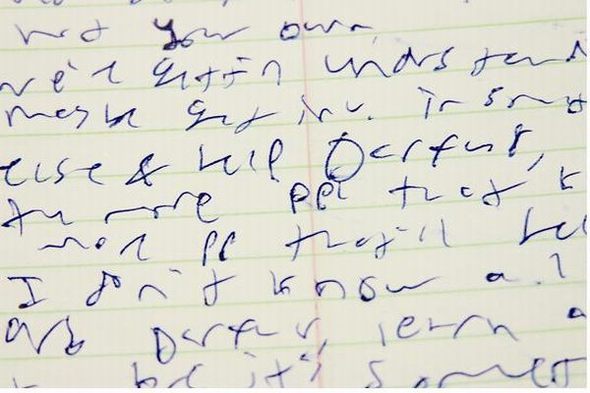 not your own
gettin undrstand
maybe get inv. in s
else & help Darfur,
the more ppl that k
more pp that'll hel
I don't know al
Darfur, learn a
it's som